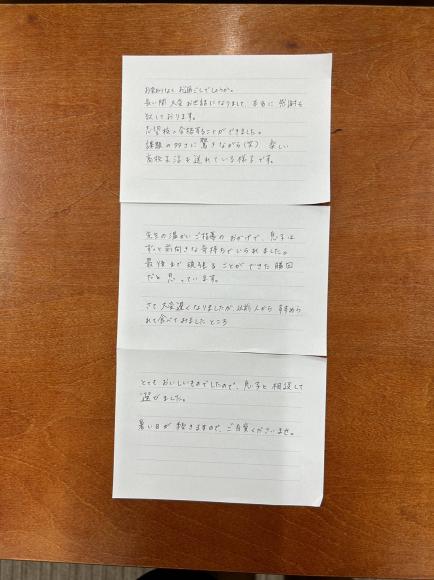 お変わりなく お過ごしでしょうか。
長い間 大変 お世話になりまして、本当に 感謝を
致しております。
志望校に合格することができました。
課題の多さに 驚きながら(笑) 楽しい
高校生活を 送れている様子です。
先生の温かいご指導の おかげで、息子は
ずっと前向きな気持ちでいられました。
最後まで 頑張る ことが できた 勝因
だと 思っています。
さて 大変遅くなりましたが、以前 人から すすめら
れて食べてみましたところ
とてもおいしいものでしたので、息子と 相談して
選びました。
暑い日が 続きますので、ご自愛くださいませ。